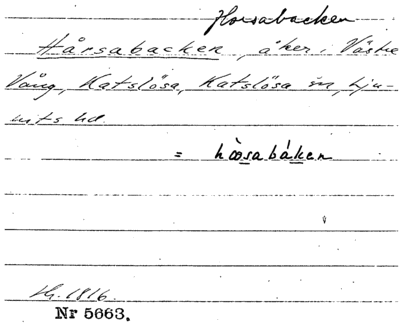 Horsabacken
Hårsabacken, åker i Västre
Vång, Katslösa, Katslösa sn, Lju-
nits hd
= hòsabáken
Sk. 1816.
Nr 5663.